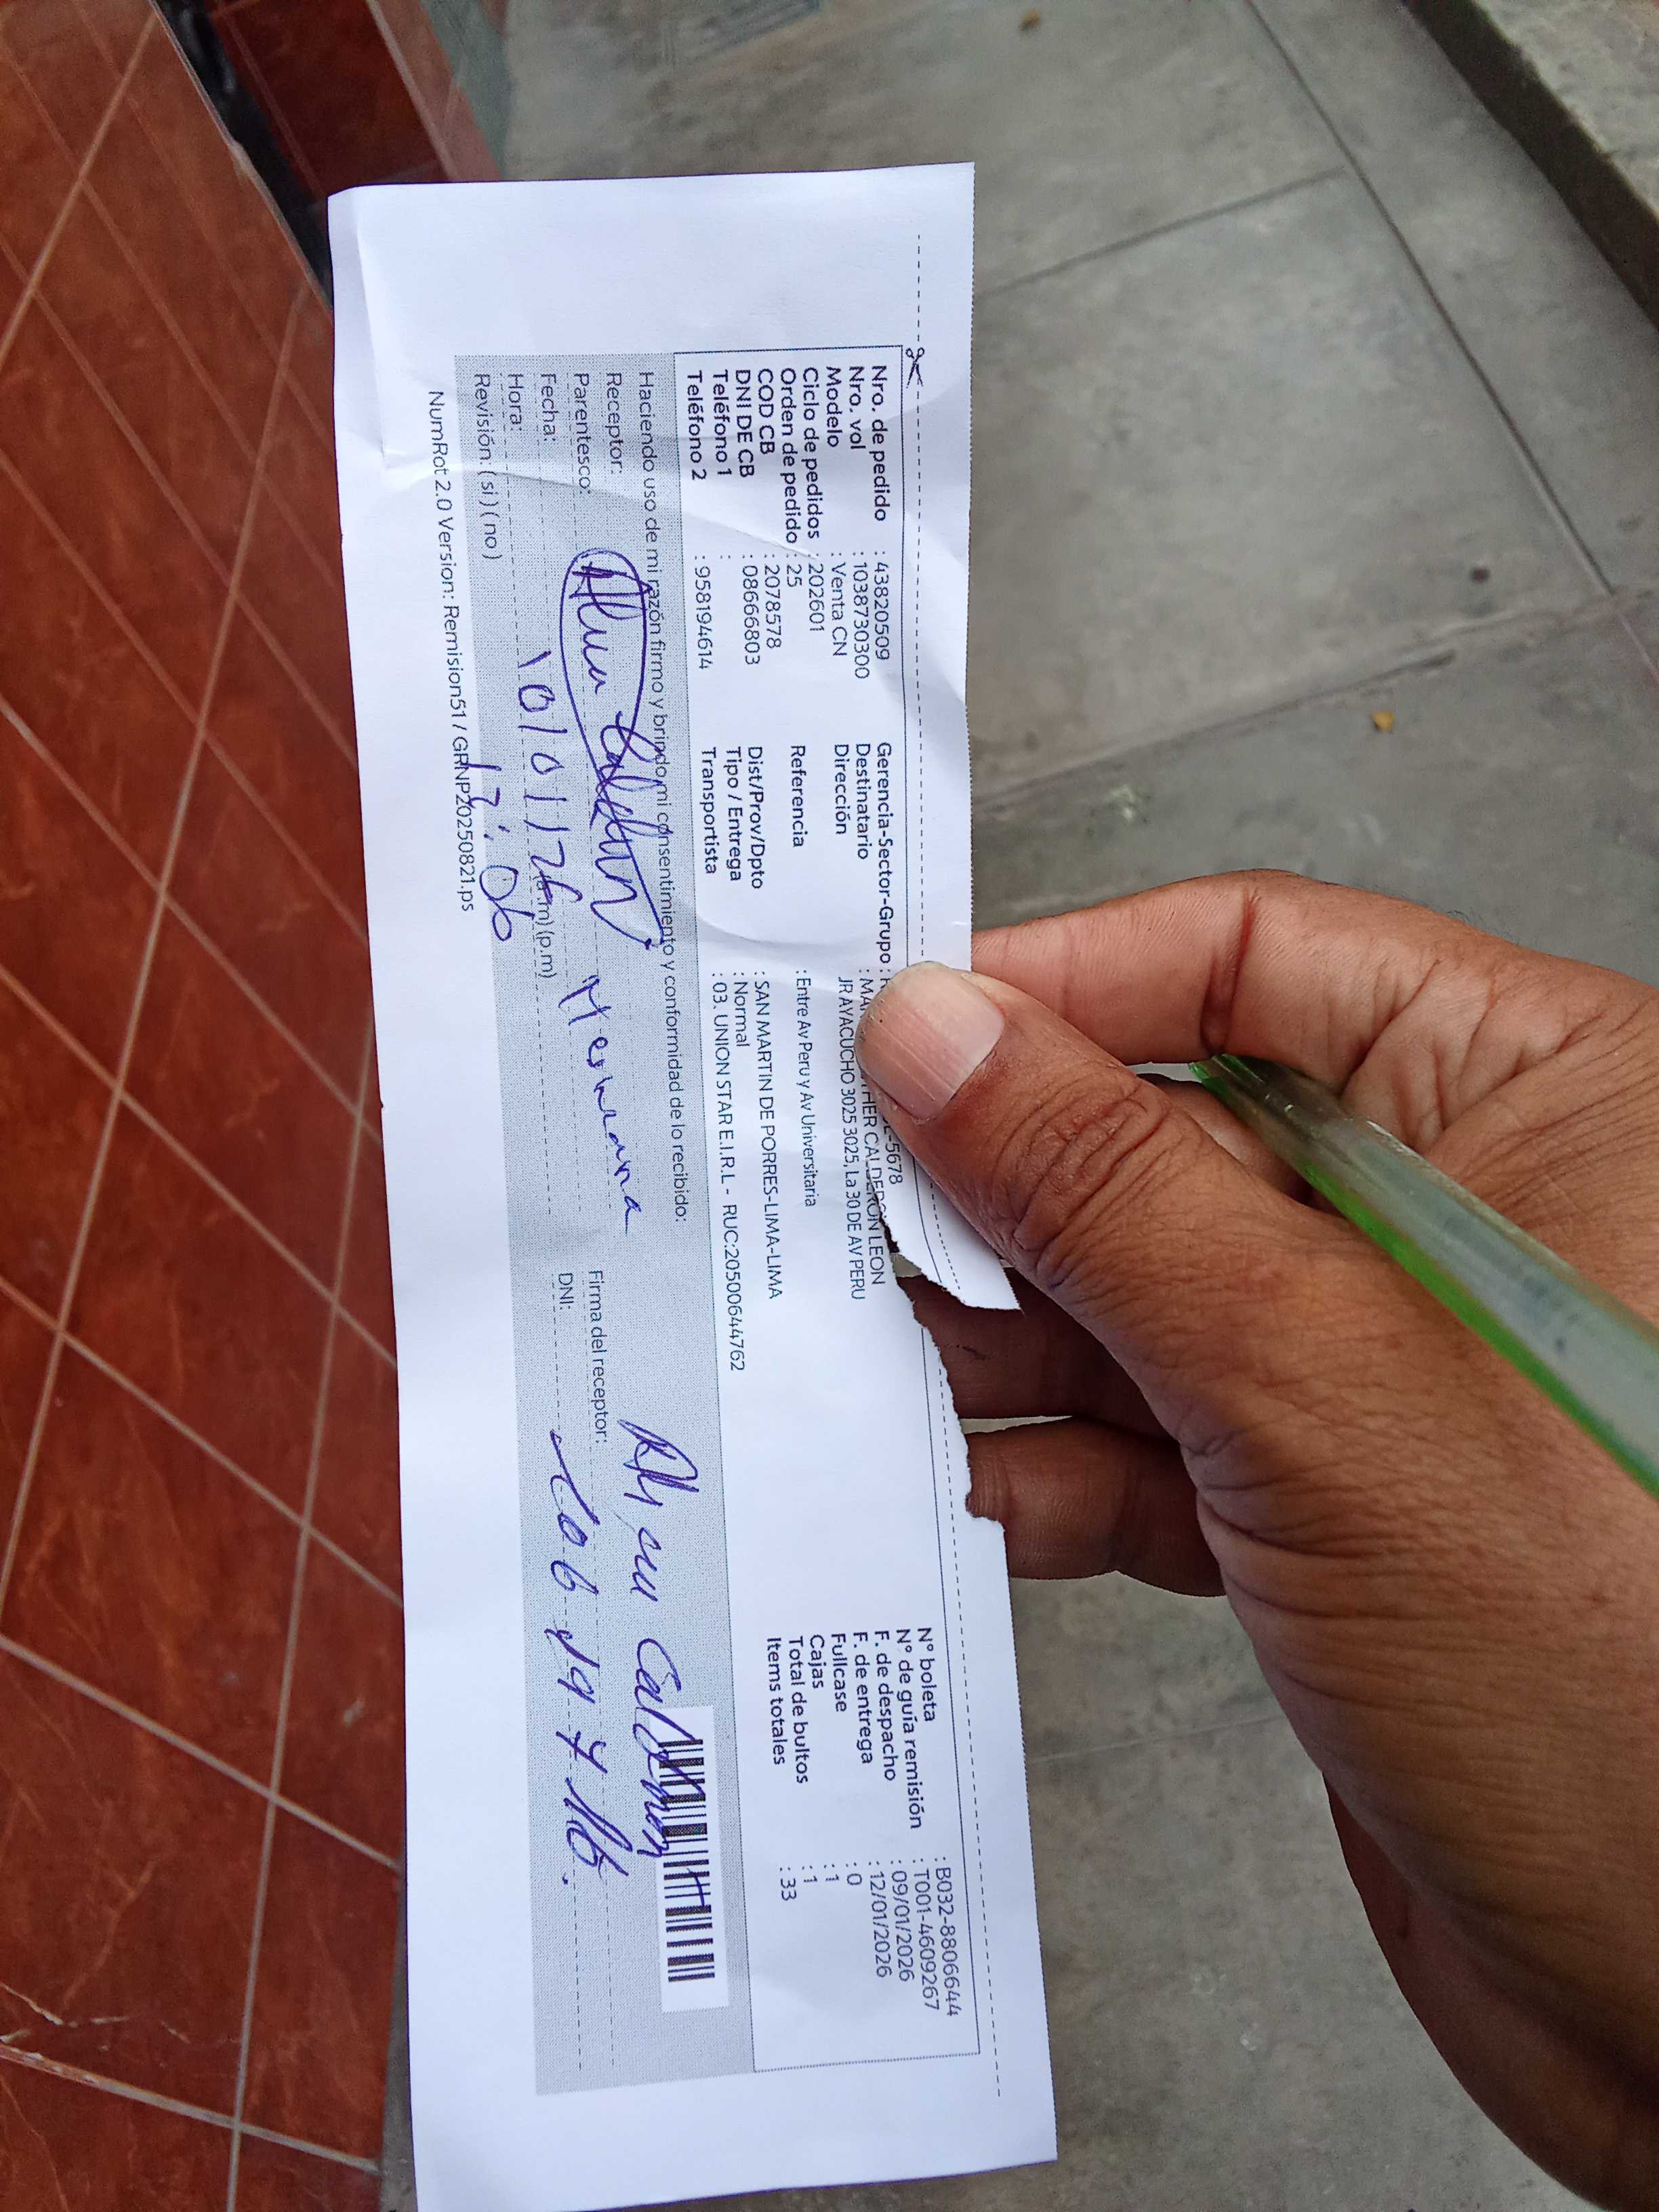 Nro. de pedido : 43820509
Nro. vol : 1038730300
Modelo : Venta CN
Ciclo de pedidos : 202601
Orden de pedido : 25
COD CB : 2078578
DNI DE CB : 08666803
Teléfono 1 :
Teléfono 2 : 958194614
Gerencia-Sector-Grupo : -5678
Destinatario : CALDERON LEON
Dirección JR AYACUCHO 3025 3025, La 30 DE AV PERU
Referencia : Entre Av Peru y Av Universitaria
Dist/Prov/Dpto : SAN MARTIN DE PORRES-LIMA-LIMA
Tipo / Entrega : Normal
Transportista : 03. UNION STAR E.I.R.L - RUC:20500644762
N° boleta : B032-8806644
N° de guía remisión : T001-4609267
F. de despacho : 09/01/2026
F. de entrega : 12/01/2026
Fullcase : 0
Cajas : 1
Total de bultos : 1
Items totales : 33
Haciendo uso de mi razón firmo y brindo mi consentimiento y conformidad de lo recibido:
Receptor:
Parentesco: Hermana
Fecha: 10/01/26
Hora: (a.m) (p.m)
Revisión: ( si ) ( no )
Firma del receptor:
DNI:
NumRot 2.0 Version: Remision51 / GRNP20250821.ps